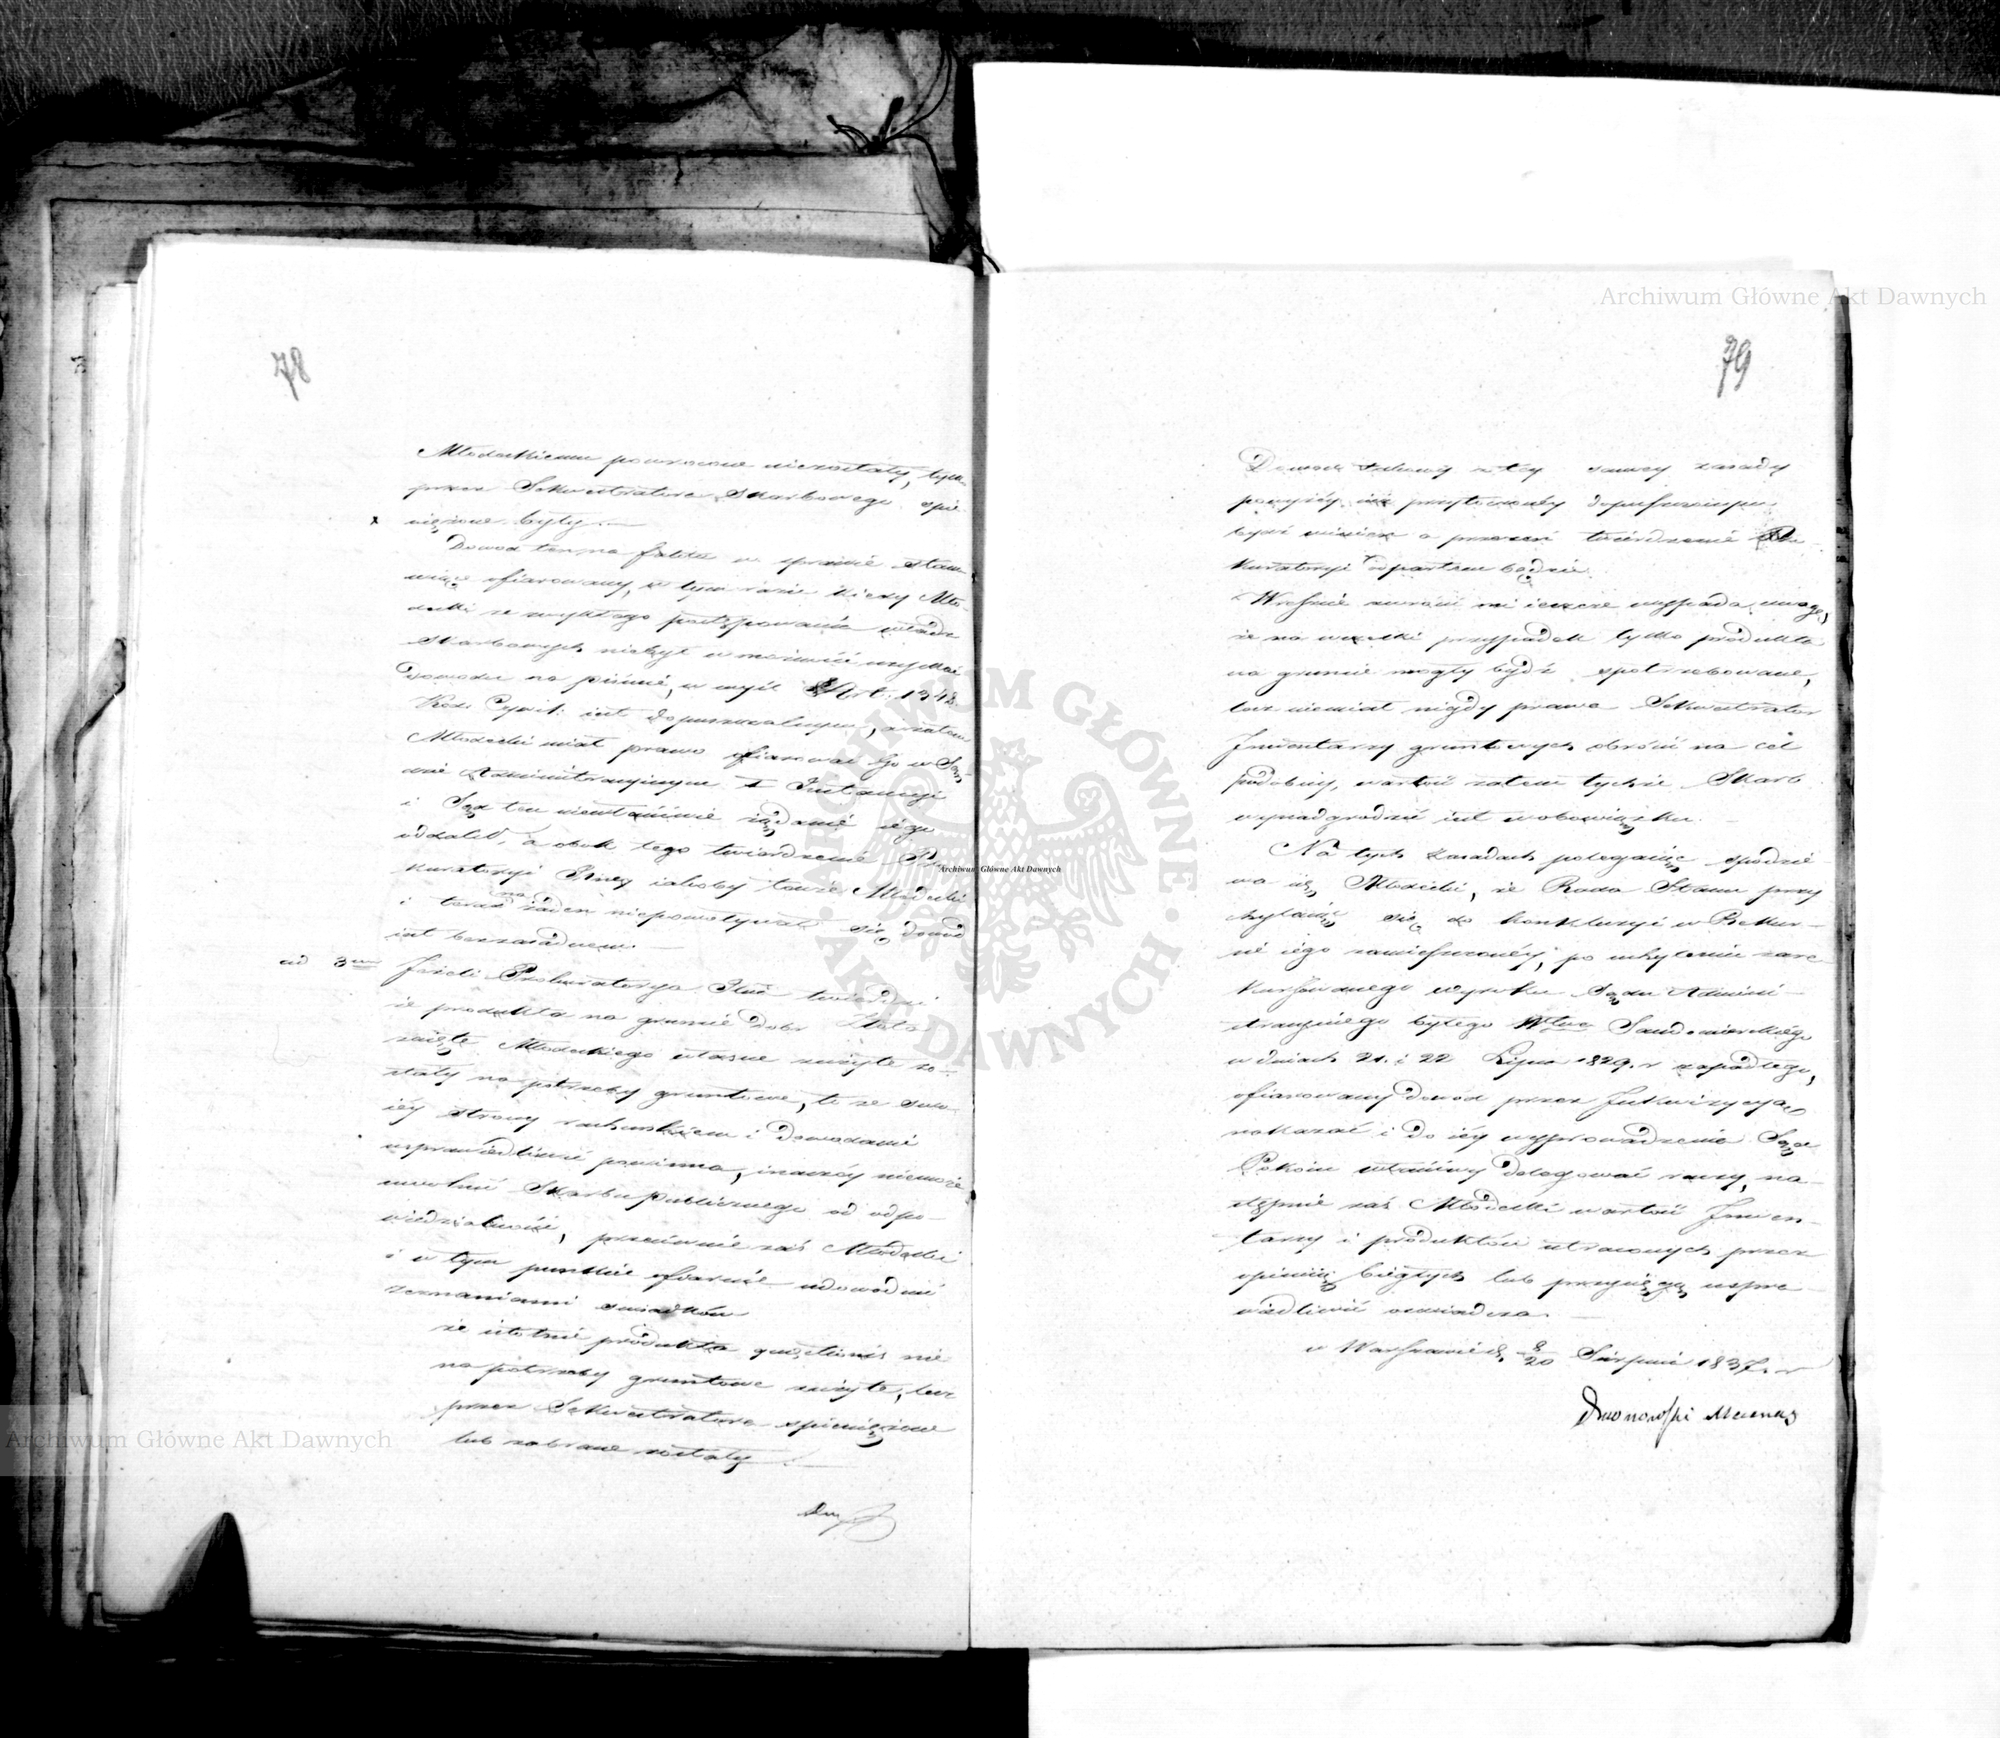 78
Młodeckiemu powrócone niezostały, tylko
przez Sekwestratora Skarbowego spie-
niężone były. —
Dowod ten na fakta w sprawie stano-
wiące ofiarowany, w tym razie kiedy Mło-
decki ze zwykłego postępowania władz
Skarbowych niebył w możności uzyskać
dowodu na piśmie, w myśl Art. 1348.
Kod. Cywil. iest dopuszczalnym, a zatem
Młodecki miał prawo ofiarować go w Są-
dzie Administracyinym I Instancyi
i Sąd ten niewłaściwie żądanie iego
oddalił, a obok tego twierdzenie Pro-
kuratoryi iakoby tenże Młodecki
i teraz na żaden niepowoływał się dowód
iest bezzasadnem. —
ad 3um Jeżeli Prokuratorya twierdzi
że produkta na gruncie dobr Złota
zaięte Młodeckiego własne zużyte zo-
stały na potrzeby gruntowe, to ze swo-
iéy strony rachunkiem i dowodami
usprawiedliwić powinna, inaczéy niemoże
uwolnić Skarbu publicznego od odpo-
wiedzialności, przeciwnie zaś Młodecki
i w tym punkcie ofiaruie udowodnić
zeznaniami świadków
że istotnie produkta nie
na potrzeby gruntowe zużyte, lecz
przez Sekwestratora spieniężone
lub zabrane zostały. —
79
Dowod takowy z téy saméy zasady
powyżéy iuż przytoczonéy dopuszczonym
bydź winien a przezeń twierdzenie Pro-
kuratoryi odpartem będzie.
Wreszcie zwrócić mi ieszcze wypada uwagę,
że na wszelki przypadek tylko produkta
na gruncie mogły bydź spotrzebowane,
lecz niemiał nigdy prawa Sekwestrator
Inwentarzy gruntowych obrócić na cel
podobny, wartość zatem tychże Skarb
wynadgrodzić iest w obowiązku. —
Na tych zasadach polegaiąc spodzie-
wa się Młodecki, że Rada Stanu przy
chylaiąc się do konkluzyi w Rekur-
sie iego zamieszczonéy, po uchyleniu zare-
kursowanego wyroku Sądu Admini-
stracyinego byłego Wtwa Sandomierskiego
w dniach 21. i 22 Lipca 1829. r zapadłego,
ofiarowany dowod przez Inkwizycyą
nakazać i do iéy wyprowadzenia Sąd
Pokoiu właściwy delegować raczy, na-
stępnie zaś Młodecki wartość Inwen-
tarzy i produktów utraconych przez
opinią biegłych lub przysięgą uspra-
wiedliwić oświadcza. —
w Warszawie d. 8/20 Sierpnia 1837. r
Dwonowski Mecenas
Archiwum Główne Akt Dawnych
Archiwum Główne Akt Dawnych
Archiwum Główne Akt Dawnych
ARCHIWUM GŁÓWNE · AKT DAWNYCH ·